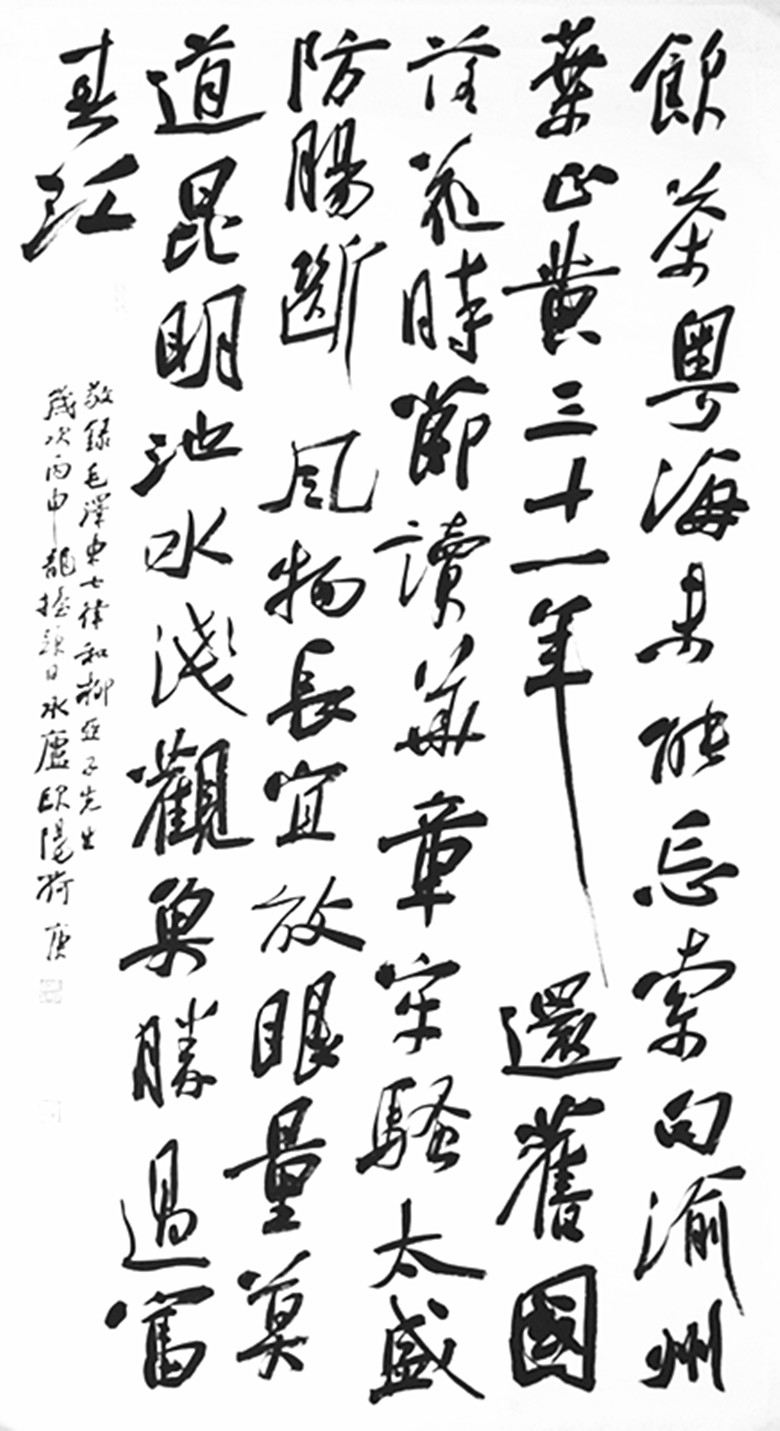 飲茶粵海未能忘索句渝州
葉正黃三十一年還舊國
落花時節讀華章牢騷太盛
防腸斷風物長宜放眼量莫
道昆明池水淺觀魚勝過富
春江
敬錄毛澤東七律和柳亞子先生
歲次丙申龍抬頭日冰廬歐陽荷庚